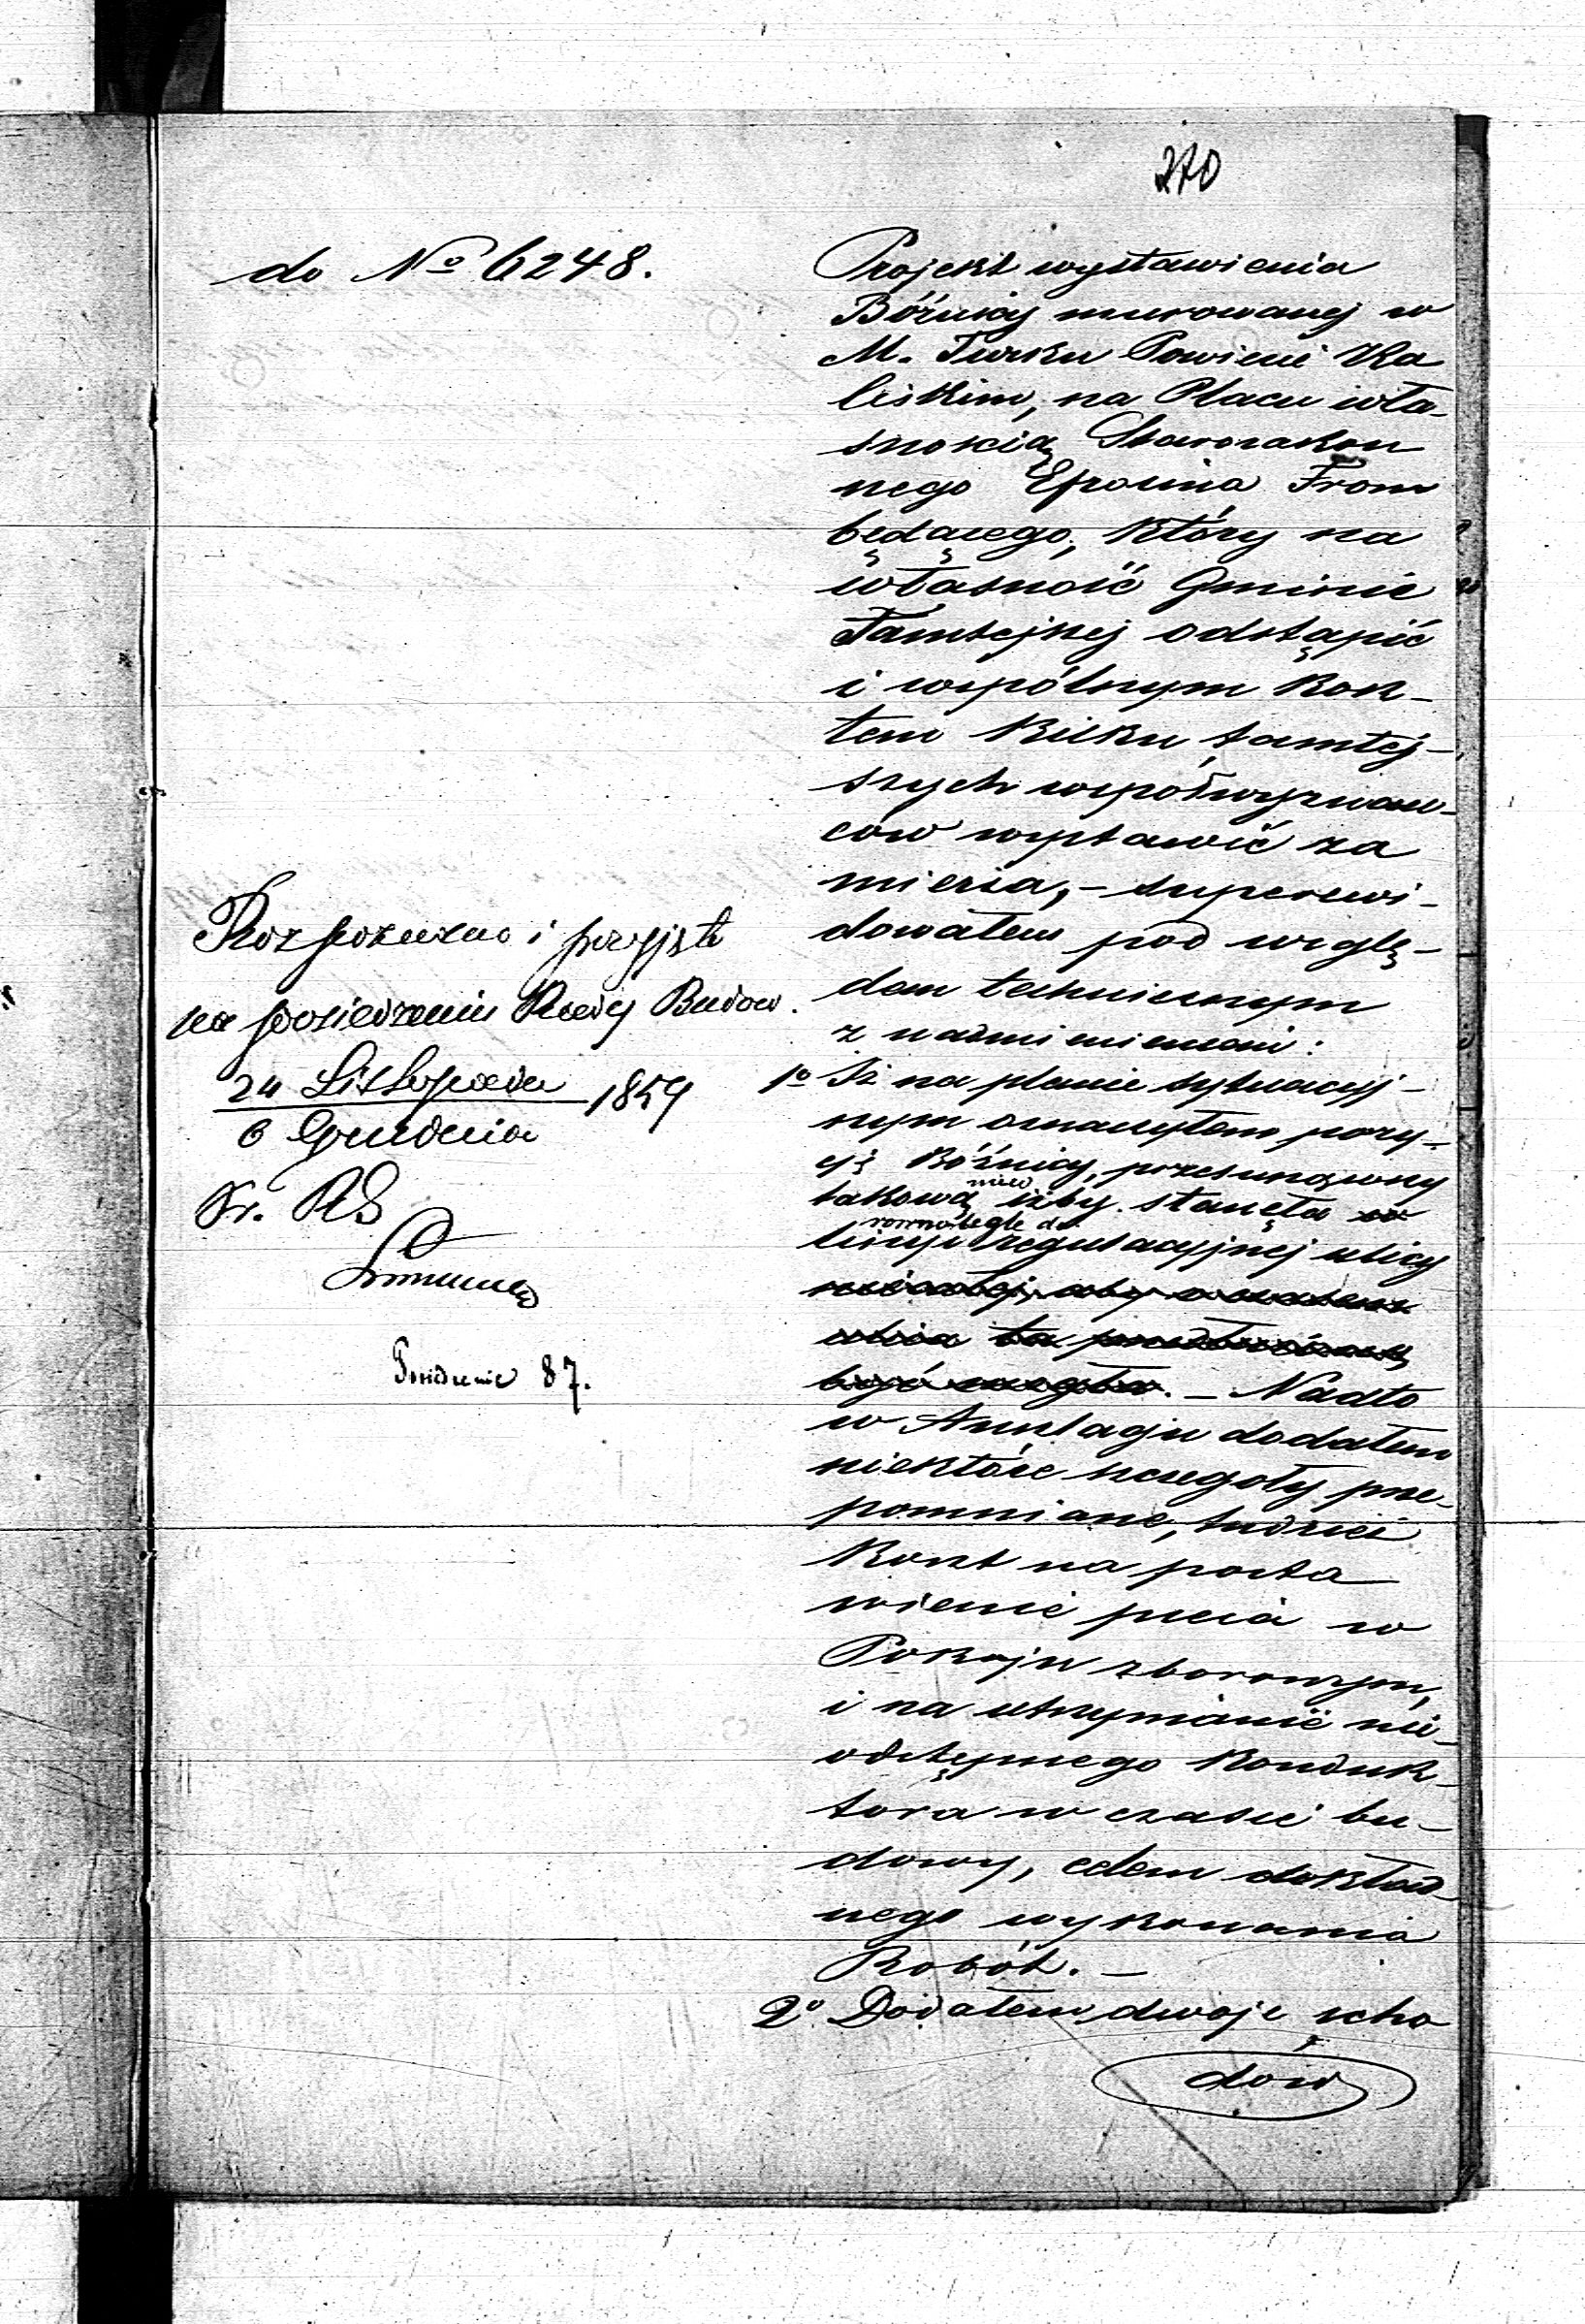 270
do No 6248.
Projekt wystawienia
Bóżnicy murowanej w
M. Turku Powiecie Ka
liskim, na Placu wła-
snością Starozakon
nego Efroima From
będącego, który na
własność Gminie
Tamtejszej odstąpić
i wspólnym kosz-
tem kilku tamtej-
szych współwyznaw-
ców wystawić za
mierza, - superrewi-
dowałem pod wzglę-
dem technicznym
z nadmienieniem:
1o Iż na planie sytuacyj-
nym oznaczyłem pozy-
cyą Bóżnicy, przesunąwszy
takową iżby stanęła w
równolegle do
linyi regulacyjnej ulicy
ulica ta
być mogła. - Nadto
w Anszlagu dodałem
niektóre szczegóły prze-
pomniane, tudzież
koszt na posta
wienie pieca w
Pokoju zborowym,
i na utrzymanie nie-
odstępnego konduk-
tora w czasie bu-
dowy, celem dokład-
nego wykonania
Robót. -
2o Dodałem dwoje scho
dów
Rozpoznano i przyjęto
na posiedzeniu Rady Budow.
24 Listopada
6 Grudnia 1859
Posiedzenie 87.